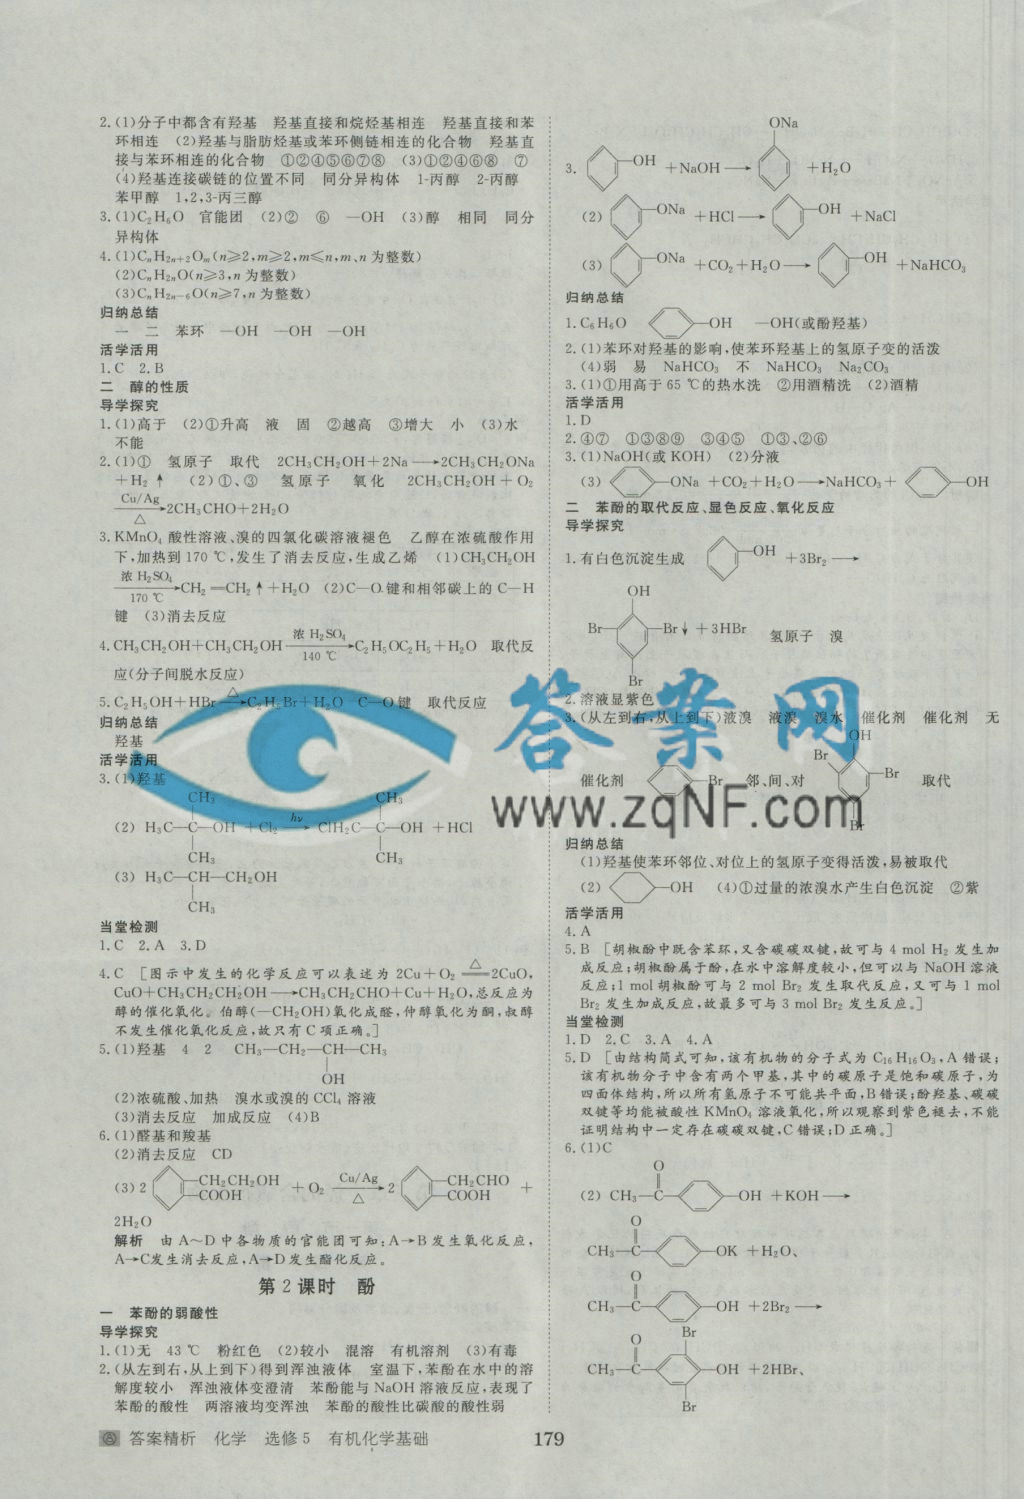 2.(1)分子中都含有羟基 羟基直接和烷烃基相连 羟基直接和苯
环相连 (2)羟基与脂肪烃基或苯环侧链相连的化合物 羟基直
接与苯环相连的化合物 ①②④⑤⑥⑦⑧ (3)①②④⑥⑧ ⑦
(4)羟基连接碳链的位置不同 同分异构体 1-丙醇 2-丙醇
苯甲醇 1,2,3-丙三醇
3.(1)C₂H₆O 官能团 (2)② ⑥ —OH (3)醇 相同 同分
异构体
4.(1)CₙH₂ₙ₊₂Oₘ(n≥2,m≥2,m≤n,m、n为整数)
(2)CₙH₂ₙO(n≥3,n为整数)
(3)CₙH₂ₙ₋₆O(n≥7,n为整数)
归纳总结
一 二 苯环 —OH —OH —OH
活学活用
1.C 2.B
二 醇的性质
导学探究
1.(1)高于 (2)①升高 液 固 ②越高 ③增大 小 (3)水
不能
2.(1)① 氢原子 取代 2CH₃CH₂OH+2Na→2CH₃CH₂ONa
+H₂↑ (2)①、③ 氢原子 氧化 2CH₃CH₂OH+O₂
Cu/Ag
△
→2CH₃CHO+2H₂O
3.KMnO₄酸性溶液、溴的四氯化碳溶液褪色 乙醇在浓硫酸作用
下,加热到170 ℃,发生了消去反应,生成乙烯 (1)CH₃CH₂OH
浓H₂SO₄
170 ℃
→CH₂=CH₂↑+H₂O (2)C—O键和相邻碳上的C—H
键 (3)消去反应
4.CH₃CH₂OH+CH₃CH₂OH 浓H₂SO₄
140 ℃
→C₂H₅OC₂H₅+H₂O 取代反
应(分子间脱水反应)
5.C₂H₅OH+HBr △→C₂H₅Br+H₂O C—O键 取代反应
归纳总结
羟基
活学活用
3.(1)羟基
CH₃ CH₃
(2) H₃C—C—OH +Cl₂ hν→ ClH₂C—C—OH +HCl
CH₃ CH₃
(3) H₃C—C—CH₂OH
CH₃
当堂检测
1.C 2.A 3.D
4.C [图示中发生的化学反应可以表述为2Cu+O₂ △=2CuO,
CuO+CH₃CH₂CH₂OH→CH₃CH₂CHO+Cu+H₂O,总反应为
醇的催化氧化。伯醇(—CH₂OH)氧化成醛,仲醇氧化为酮,叔醇
不发生催化氧化反应,故只有C项正确。]
5.(1)羟基 4 2 CH₃—CH₂—CH—CH₃
OH
(2)浓硫酸、加热 溴水或溴的CCl₄溶液
(3)消去反应 加成反应 (4)B
6.(1)醛基和羧基
(2)消去反应 CD
(3) 2 —CH₂CH₂OH —COOH +O₂ Cu/Ag △→ 2 —CH₂CHO —COOH +
2H₂O
解析 由A~D中各物质的官能团可知:A→B发生氧化反应,
A→C发生消去反应,A→D发生酯化反应。
第2课时 酚
一 苯酚的弱酸性
导学探究
1.(1)无 43 ℃ 粉红色 (2)较小 混溶 有机溶剂 (3)有毒
2.(从左到右,从上到下)得到浑浊液体 室温下,苯酚在水中的溶
解度较小 浑浊液体变澄清 苯酚能与NaOH溶液反应,表现了
苯酚的酸性 两溶液均变浑浊 苯酚的酸性比碳酸的酸性弱
ONa
3. —OH +NaOH→ +H₂O
(2) —ONa +HCl→ —OH +NaCl
(3) —ONa +CO₂+H₂O→ —OH +NaHCO₃
归纳总结
1.C₆H₆O —OH —OH(或酚羟基)
2.(1)苯环对羟基的影响,使苯环羟基上的氢原子变的活泼
(4)弱 易 NaHCO₃ 不 NaHCO₃ Na₂CO₃
3.(1)①用高于65 ℃的热水洗 ②用酒精洗 (2)酒精
活学活用
1.D
2.④⑦ ①③⑧⑨ ③④⑤ ①③、②⑥
3.(1)NaOH(或KOH) (2)分液
(3) —ONa +CO₂+H₂O→NaHCO₃+ —OH
二 苯酚的取代反应、显色反应、氧化反应
导学探究
1.有白色沉淀生成 —OH +3Br₂→
OH
Br— —Br↓+3HBr 氢原子 溴
Br
2.溶液显紫色
3.(从左到右,从上到下)液溴 液溴 溴水 催化剂 催化剂 无
OH
Br
催化剂 —Br 邻、间、对 —Br 取代
Br
答案网
www.zqNF.com
归纳总结
(1)羟基使苯环邻位、对位上的氢原子变得活泼,易被取代
(2) —OH (4)①过量的浓溴水产生白色沉淀 ②紫
活学活用
4.A
5.B [胡椒酚中既含苯环,又含碳碳双键,故可与4 mol H₂发生加
成反应;胡椒酚属于酚,在水中溶解度较小,但可以与NaOH溶液
反应;1 mol胡椒酚可与2 mol Br₂发生取代反应,又可与1 mol
Br₂发生加成反应,故最多可与3 mol Br₂发生反应。]
当堂检测
1.D 2.C 3.A 4.A
5.D [由结构简式可知,该有机物的分子式为C₁₆H₁₆O₃,A错误;
该有机物分子中含有两个甲基,其中的碳原子是饱和碳原子,为
四面体结构,所以所有氢原子不可能共平面,B错误;酚羟基、碳碳
双键等均能被酸性KMnO₄溶液氧化,所以观察到紫色褪去,不能
证明结构中一定存在碳碳双键,C错误;D正确。]
6.(1)C
O
(2) CH₃—C— —OH +KOH→
O
CH₃—C— —OK +H₂O、
O
CH₃—C— —OH +2Br₂→
Br
O
CH₃—C— —OH +2HBr、
Br
答案精析 化学 选修5 有机化学基础 179